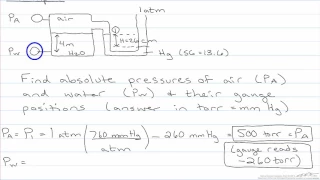 1 atm
PA
air
4m
H=26 cm
Pw
H2O
Hg (SG=13.6)
Find absolute pressures of air (PA)
and water (Pw) & their gauge
positions (answer in torr = mm Hg)
PA = P1 = 1 atm (760 mm Hg / atm) - 260 mm Hg = 500 torr = PA
(gauge reads
-260 torr)
Pw =